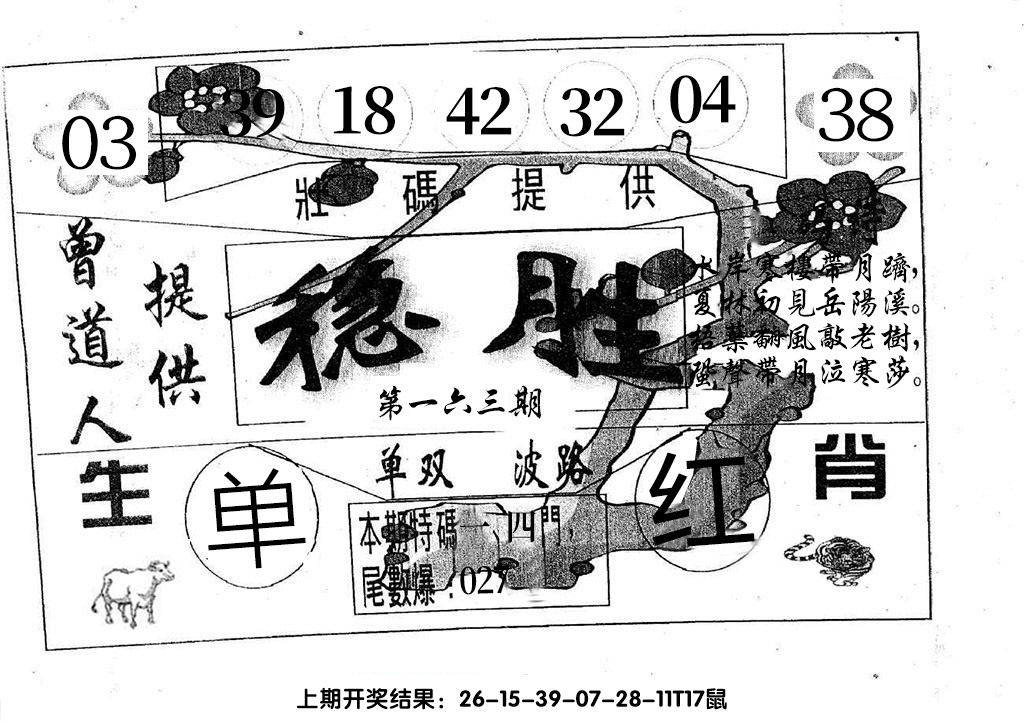 03 39 18 42 32 04 38
壯碼提供
曾道人
提供
稳胜
第一六三期
水岸寒樓帶月躋，
夏林初見岳陽溪。
蕖翻風敲老樹，
蛩聲帶月泣寒莎。
单双 波路
生肖
单
红
本期特碼一、四門，
尾數爆：027
上期开奖结果：26-15-39-07-28-11T17鼠